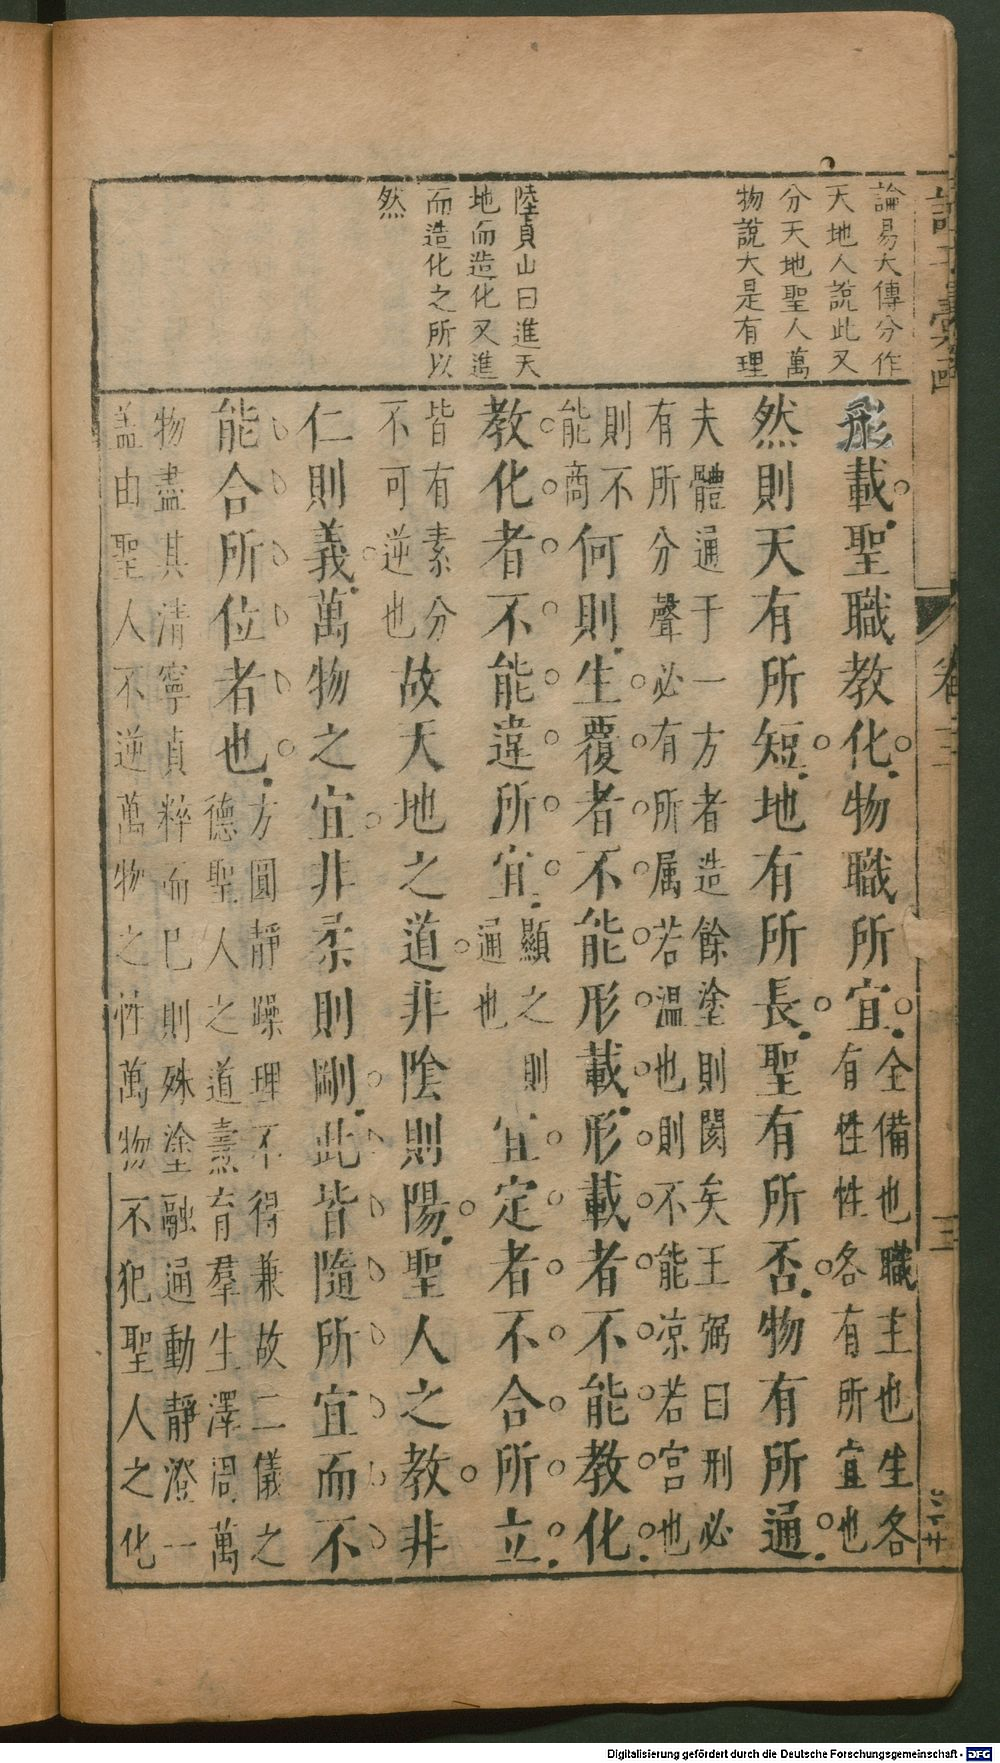 論易大傳分作
天地人說此又
分天地聖人萬
物說大是有理
陸貞山曰進天
地而造化又進
而造化之所以
然
形載聖職教化物職所宜
全備也職主也生各
有性性各有所宜也
然則天有所短地有所長聖有所否物有所通
夫體通于一方者造餘塗則閡矣王弼曰刑必
有所分聲必有所属若温也則不能凉若宮也
則不
能商
何則生覆者不能形載形載者不能教化
教化者不能違所宜
顯之
通也
則
宜定者不合所立
皆有素分
不可逆也
故天地之道非陰則陽聖人之教非
仁則義萬物之宜非柔則剛此皆隨所宜而不
能合所位者也
方圓靜躁理不得兼故二儀之
德聖人之道燾育羣生澤周萬
物盡其清寧貞粹而已則殊塗融通動靜澄一
盖由聖人不逆萬物之性萬物不犯聖人之化
卷
三
Digitalisierung gefördert durch die Deutsche Forschungsgemeinschaft - DFG